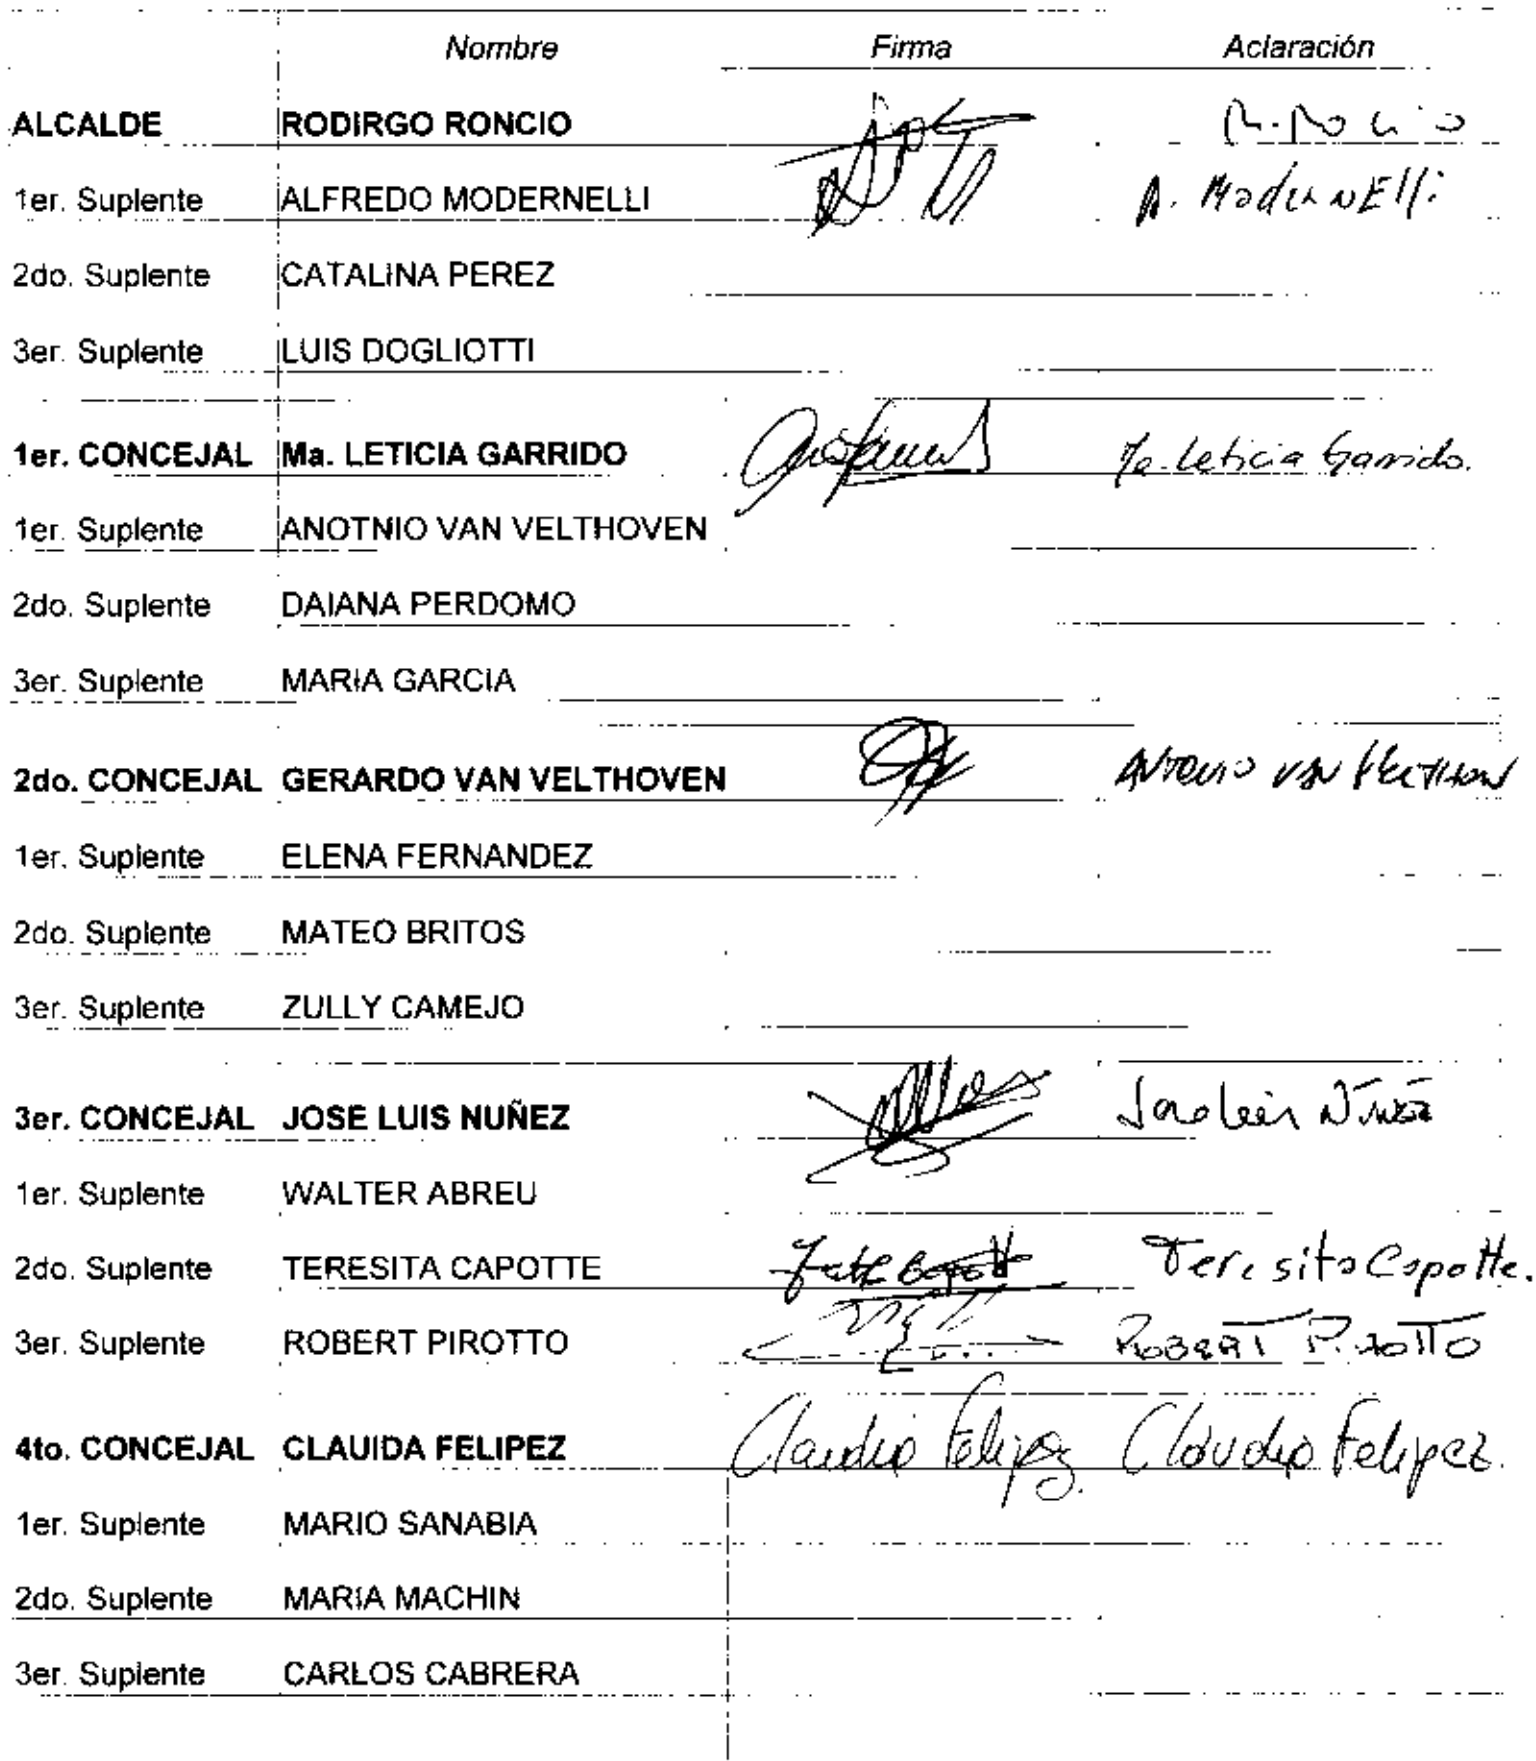 Nombre Firma Aclaración
ALCALDE RODIRGO RONCIO
1er. Suplente ALFREDO MODERNELLI A. ModernElli
2do. Suplente CATALINA PEREZ
3er. Suplente LUIS DOGLIOTTI
1er. CONCEJAL Ma. LETICIA GARRIDO Ma. Leticia Garrido.
1er. Suplente ANOTNIO VAN VELTHOVEN
2do. Suplente DAIANA PERDOMO
3er. Suplente MARIA GARCIA
2do. CONCEJAL GERARDO VAN VELTHOVEN ANTONIO VAN VELTHOVEN
1er. Suplente ELENA FERNANDEZ
2do. Suplente MATEO BRITOS
3er. Suplente ZULLY CAMEJO
3er. CONCEJAL JOSE LUIS NUÑEZ Jose Luis Núñez
1er. Suplente WALTER ABREU
2do. Suplente TERESITA CAPOTTE Teresita Capotte.
3er. Suplente ROBERT PIROTTO ROBERT PIROTTO
4to. CONCEJAL CLAUIDA FELIPEZ Claudia Felipez. Claudia Felipez.
1er. Suplente MARIO SANABIA
2do. Suplente MARIA MACHIN
3er. Suplente CARLOS CABRERA